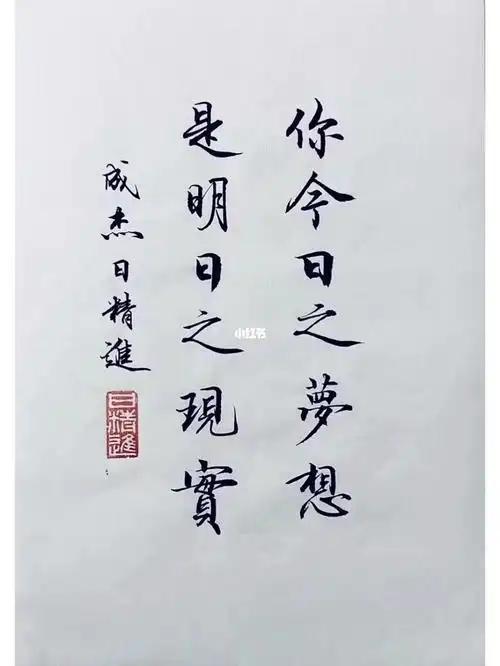 你今日之夢想
是明日之現實
成杰日精進
日精進
小红书